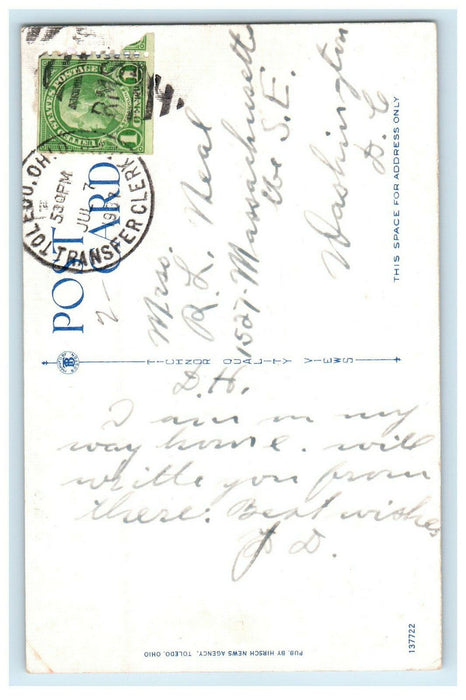 UNITED STATES POSTAGE
1
TOLEDO, OHIO
530 PM
JUL 7
TRANSFER CLERK
RMS
POST CARD
2-
Mrs.
R. L. Neal
1527-Massachusetts
Ave S.E.
Washington
D. C.
THIS SPACE FOR ADDRESS ONLY
TICHNOR QUALITY VIEWS
D. H.
I am on my
way home. will
writte you from
there. Best wishes
J D.
PUB. BY HIRSCH NEWS AGENCY, TOLEDO, OHIO
137722